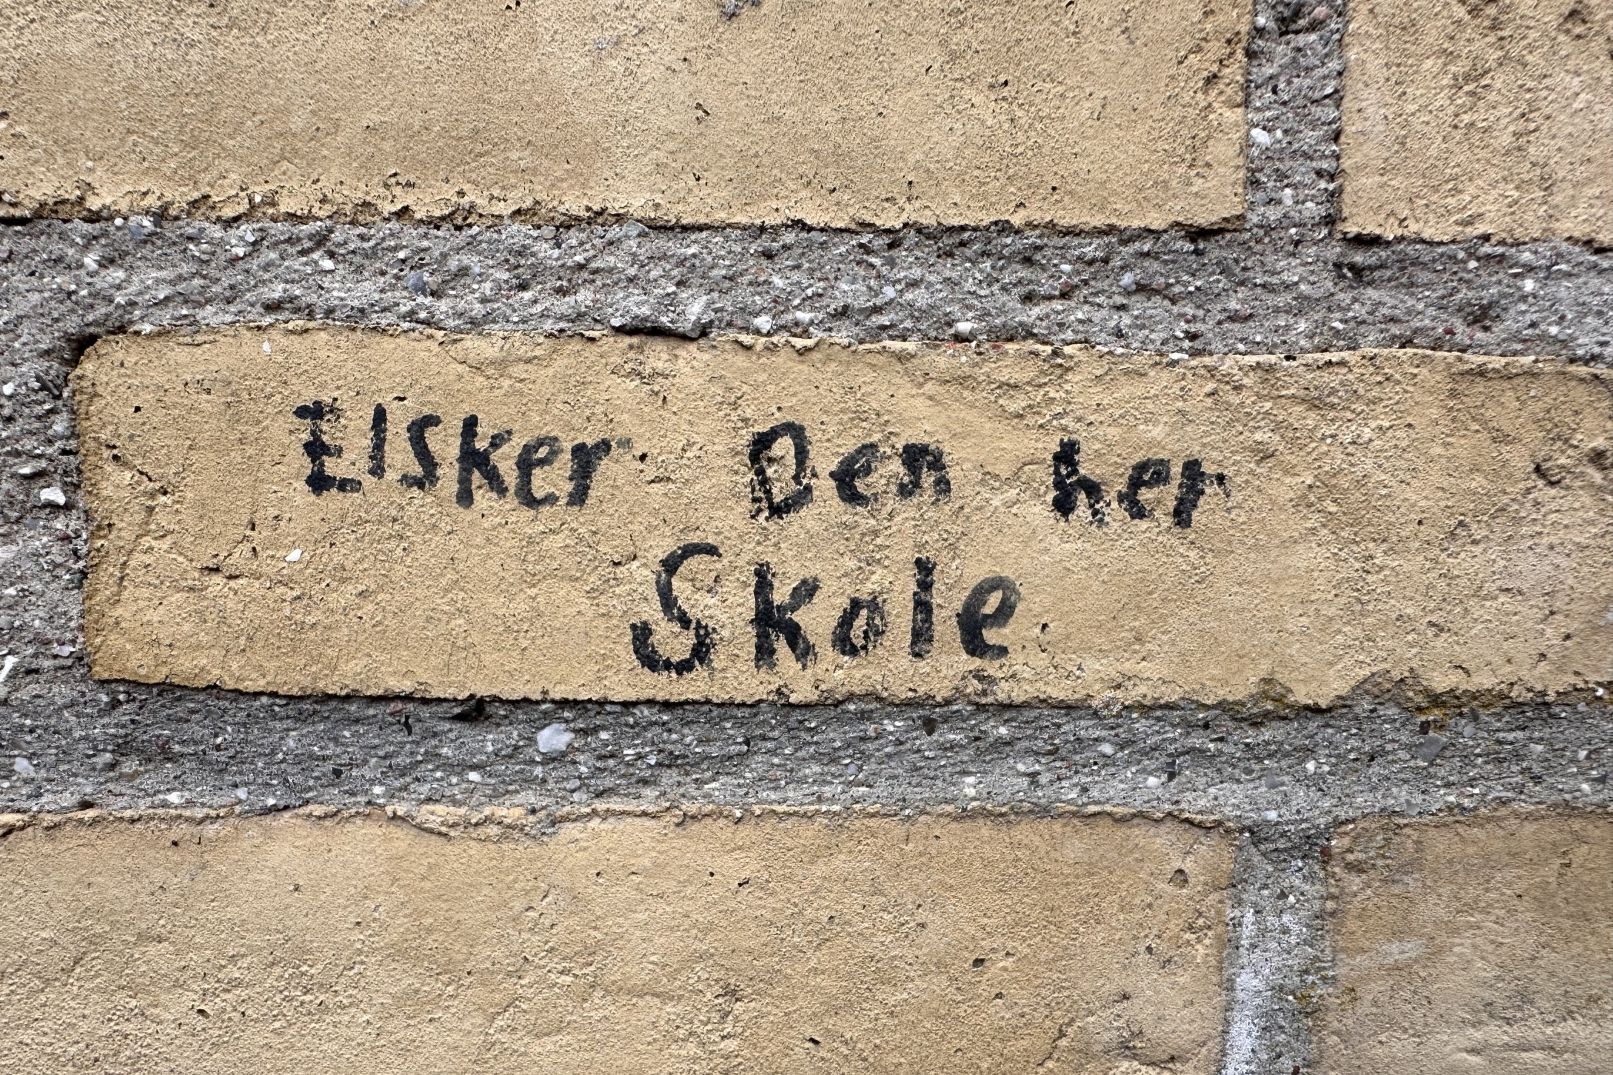 Elsker Den her
Skole